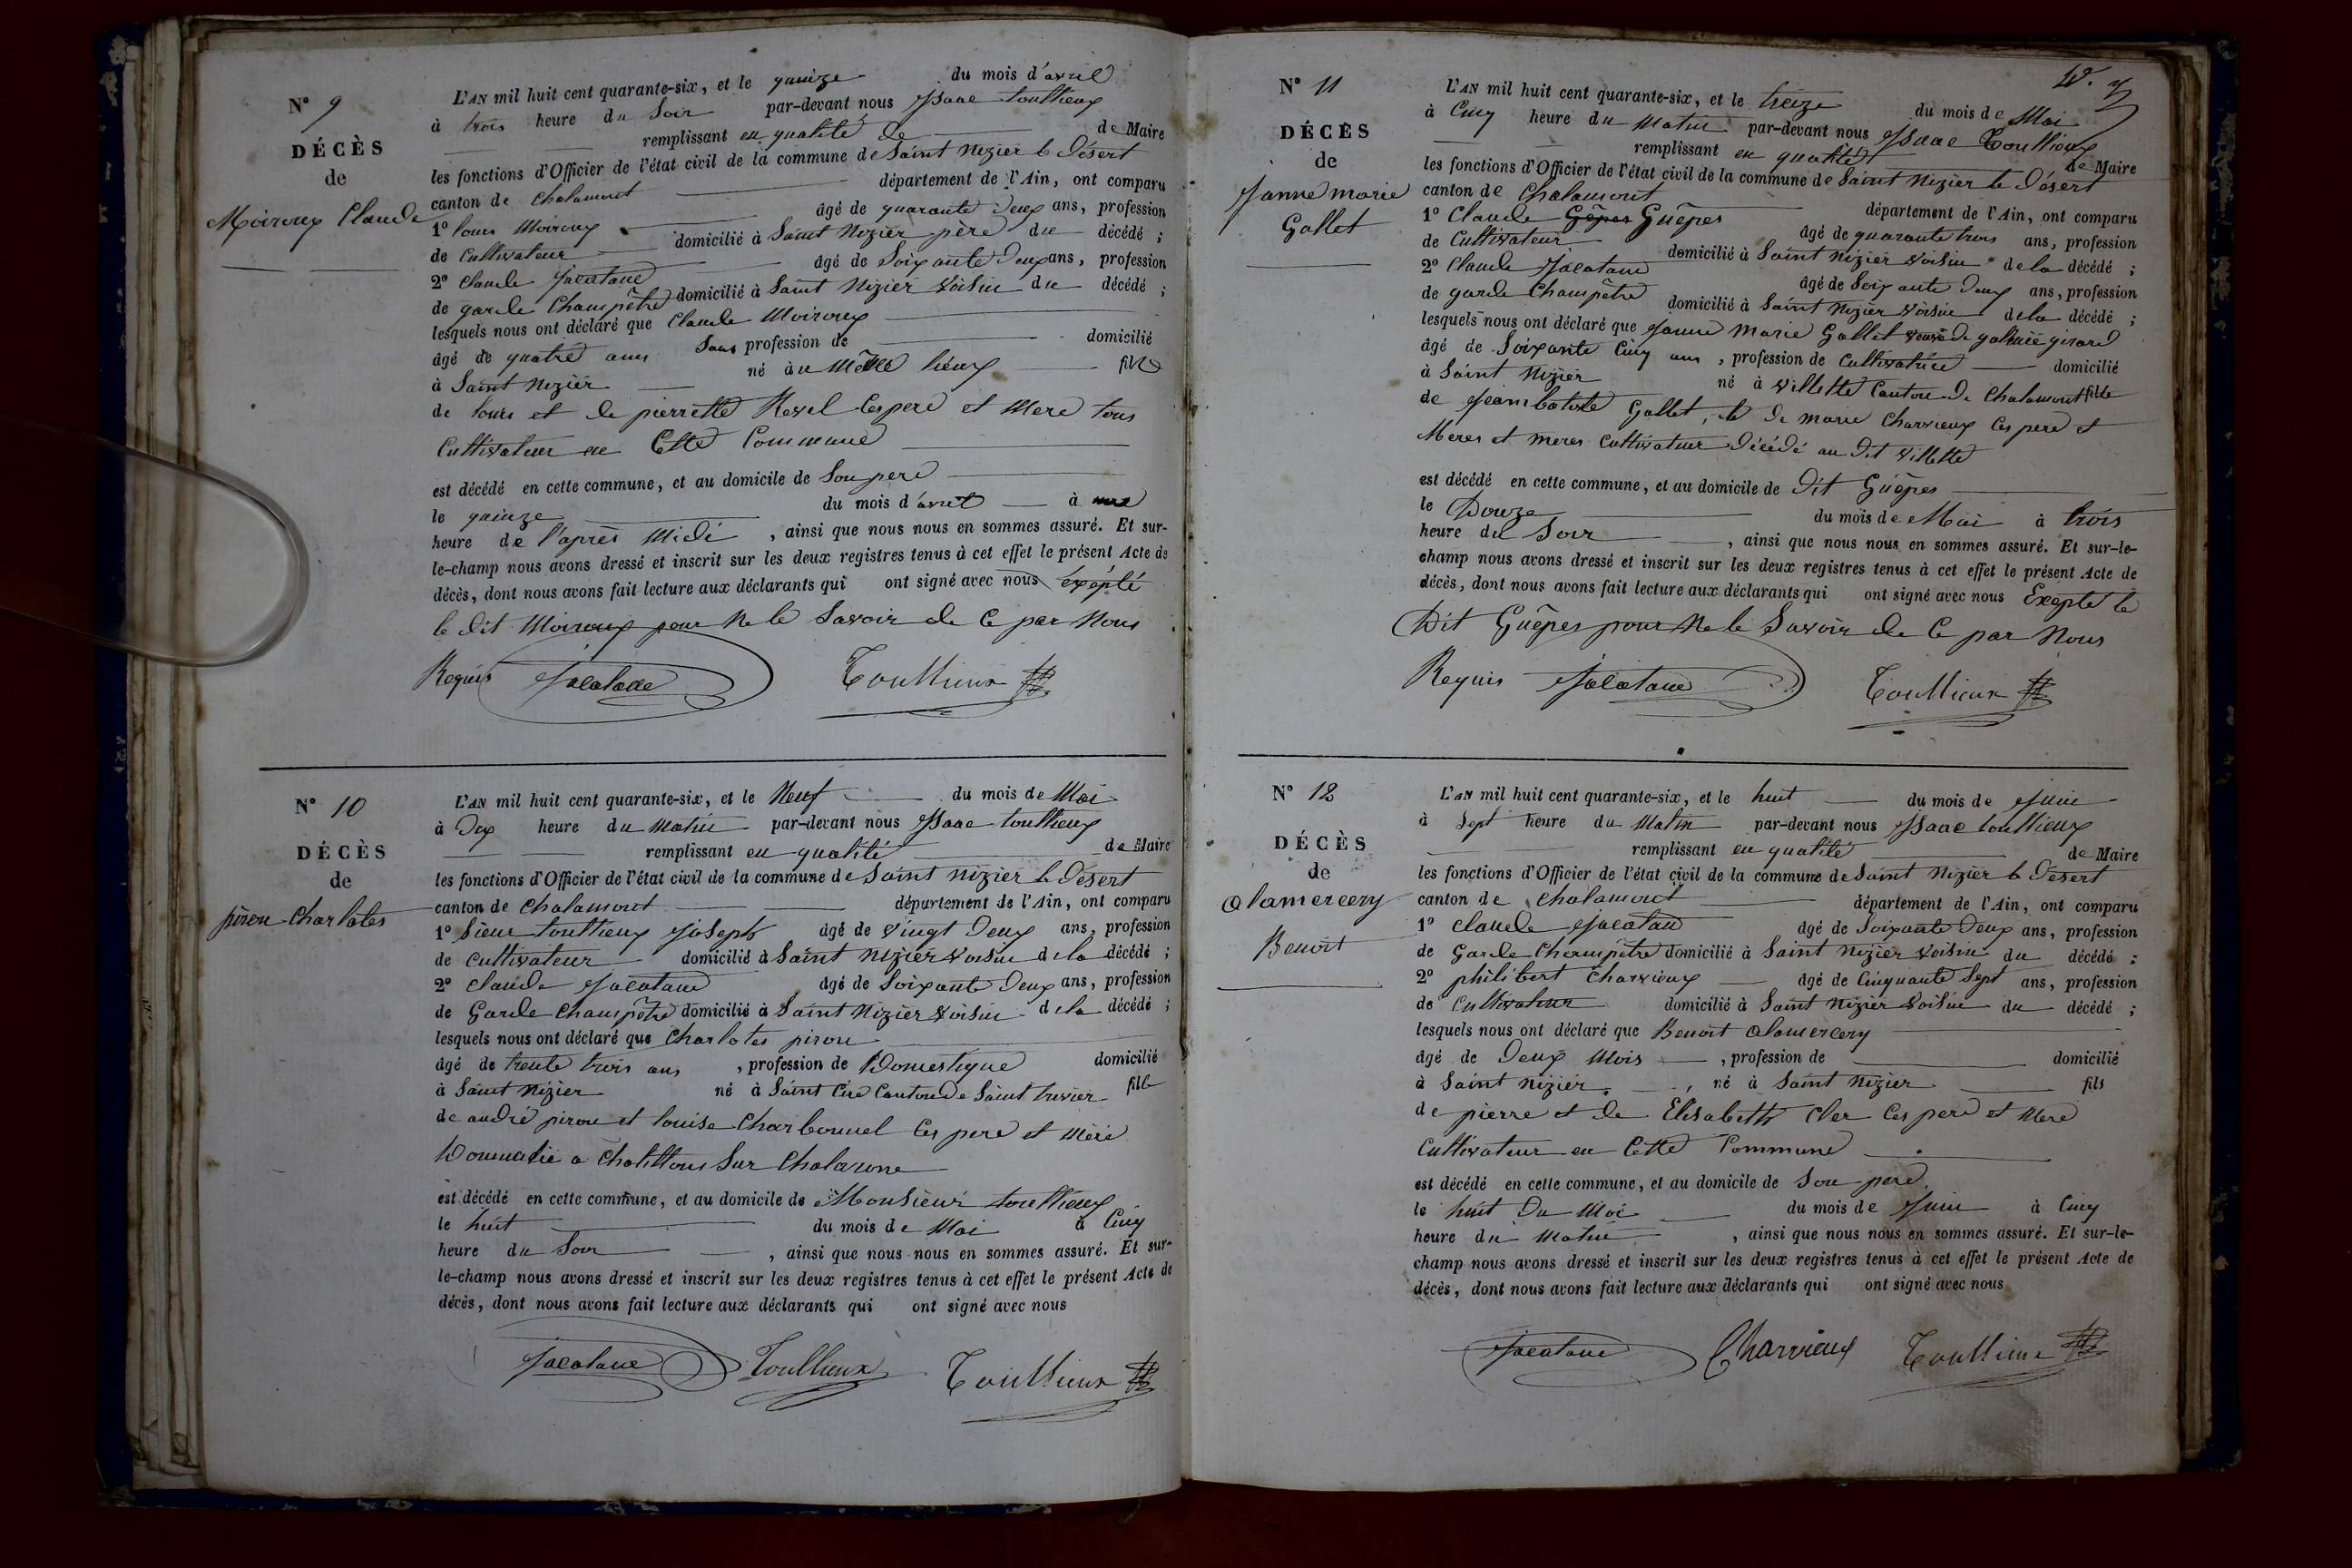 N° 9
DÉCÈS
de
Moiroux Claude
L'AN mil huit cent quarante-six, et le quinze du mois d'avril
à trois heure du Soir par-devant nous Isaac toullieux
remplissant en qualité de de Maire
les fonctions d'Officier de l'état civil de la commune de Saint Nizier le Désert
canton de Chalamont département de l'Ain, ont comparu
1° louis Moiroux âgé de quarante deux ans, profession
de Cultivateur domicilié à Saint Nizier père du décédé ;
2° Claude Jacatane âgé de Soixante deux ans, profession
de garde Champêtre domicilié à Saint Nizier Voisin du décédé ;
lesquels nous ont déclaré que Claude Moiroux
âgé de quatre ans Sans profession de domicilié
à Saint Nizier né au Même lieux fils
de louis et de pierrette Revel Ces pere et Mere tous
Cultivateur en Cette Commune
est décédé en cette commune, et au domicile de Son pere
le quinze du mois d'avril à une
heure de l'après Midi , ainsi que nous nous en sommes assuré. Et sur-
le-champ nous avons dressé et inscrit sur les deux registres tenus à cet effet le présent Acte de
décès, dont nous avons fait lecture aux déclarants qui ont signé avec nous éxépté
le dit Moiroux pour Ne le Savoir de Ce par Nous
Requis Jacatane Toullieux
N° 10
DÉCÈS
de
piron Charlotes
L'AN mil huit cent quarante-six, et le Neuf du mois de Mai
à Dix heure du Matin par-devant nous Isaac toullieux
remplissant en qualité de Maire
les fonctions d'Officier de l'état civil de la commune de Saint Nizier le Désert
canton de Chalamont département de l'Ain, ont comparu
1° Sieur toullieux Joseph âgé de Vingt Deux ans, profession
de Cultivateur domicilié à Saint Nizier Voisin de la décédé ;
2° Claude Jacatane âgé de Soixante Deux ans, profession
de Garde Champêtre domicilié à Saint Nizier Voisin de la décédé ;
lesquels nous ont déclaré que Charlotes piron
âgé de trente trois ans , profession de Domestique domicilié
à Saint Nizier né à Saint Cire Canton de Saint trivier fille
de andré piron et louise Charbonnel Ces pere et Mère
à Chatillons Sur Chalaronne
est décédé en cette commune, et au domicile de Monsieur toullieux
le huit du mois de Mai à Cinq
heure du Soir , ainsi que nous nous en sommes assuré. Et sur-
le-champ nous avons dressé et inscrit sur les deux registres tenus à cet effet le présent Acte de
décès, dont nous avons fait lecture aux déclarants qui ont signé avec nous
Jacatane Toullieux Toullieux
N° 11
DÉCÈS
de
Janne marie
Gallet
L'AN mil huit cent quarante-six, et le treize du mois de Mai
à Cinq heure du Matin par-devant nous Isaac Toullieux
remplissant en qualité de Maire
les fonctions d'Officier de l'état civil de la commune de Saint Nizier le Désert
canton de Chalamont département de l'Ain, ont comparu
1° Claude Gêpes Guêpes âgé de quarante trois ans, profession
de Cultivateur domicilié à Saint Nizier Voisin de la décédé ;
2° Claude Jacatane âgé de Soixante Deux ans, profession
de garde Champêtre domicilié à Saint Nizier Voisin de la décédé ;
lesquels nous ont déclaré que Janne Marie Gallet veuve de girard
âgé de Soixante Cinq ans , profession de Cultivatrice domicilié
à Saint Nizier né à Villette Canton de Chalamont fille
de Jeambatiste Gallet, et de marie Charvieux Ces pere et
Meres et meres Cultivateur Décédé au dit Villette
est décédé en cette commune, et au domicile de Dit Guêpes
le Douze du mois de Mai à trois
heure du Soir , ainsi que nous nous en sommes assuré. Et sur-le-
champ nous avons dressé et inscrit sur les deux registres tenus à cet effet le présent Acte de
décès, dont nous avons fait lecture aux déclarants qui ont signé avec nous Exépté le
Dit Guêpes pour Ne le Savoir de Ce par Nous
Requis Jacatane Toullieux
N° 12
DÉCÈS
de
alamercery
Benoit
L'AN mil huit cent quarante-six, et le huit du mois de Juin
à Sept heure du Matin par-devant nous Isaac toullieux
remplissant en qualité de Maire
les fonctions d'Officier de l'état civil de la commune de Saint Nizier le Désert
canton de Chalamont département de l'Ain, ont comparu
1° Claude Jacatane âgé de Soixante Deux ans, profession
de Garde Champêtre domicilié à Saint Nizier Voisin du décédé ;
2° philibert Charvieux âgé de Cinquante Sept ans, profession
de Cultivateur domicilié à Saint Nizier Voisin du décédé ;
lesquels nous ont déclaré que Benoit alamercery
âgé de Deux Mois , profession de domicilié
à Saint Nizier , né à Saint Nizier fils
de pierre et de Elisabeth Cler Ces pere et Mere
Cultivateur en Cette Commune
est décédé en cette commune, et au domicile de Son pere
le huit Du Moi du mois de Juin à Cinq
heure du Matin , ainsi que nous nous en sommes assuré. Et sur-le-
champ nous avons dressé et inscrit sur les deux registres tenus à cet effet le présent Acte de
décès, dont nous avons fait lecture aux déclarants qui ont signé avec nous
Jacatane Charvieux Toullieux